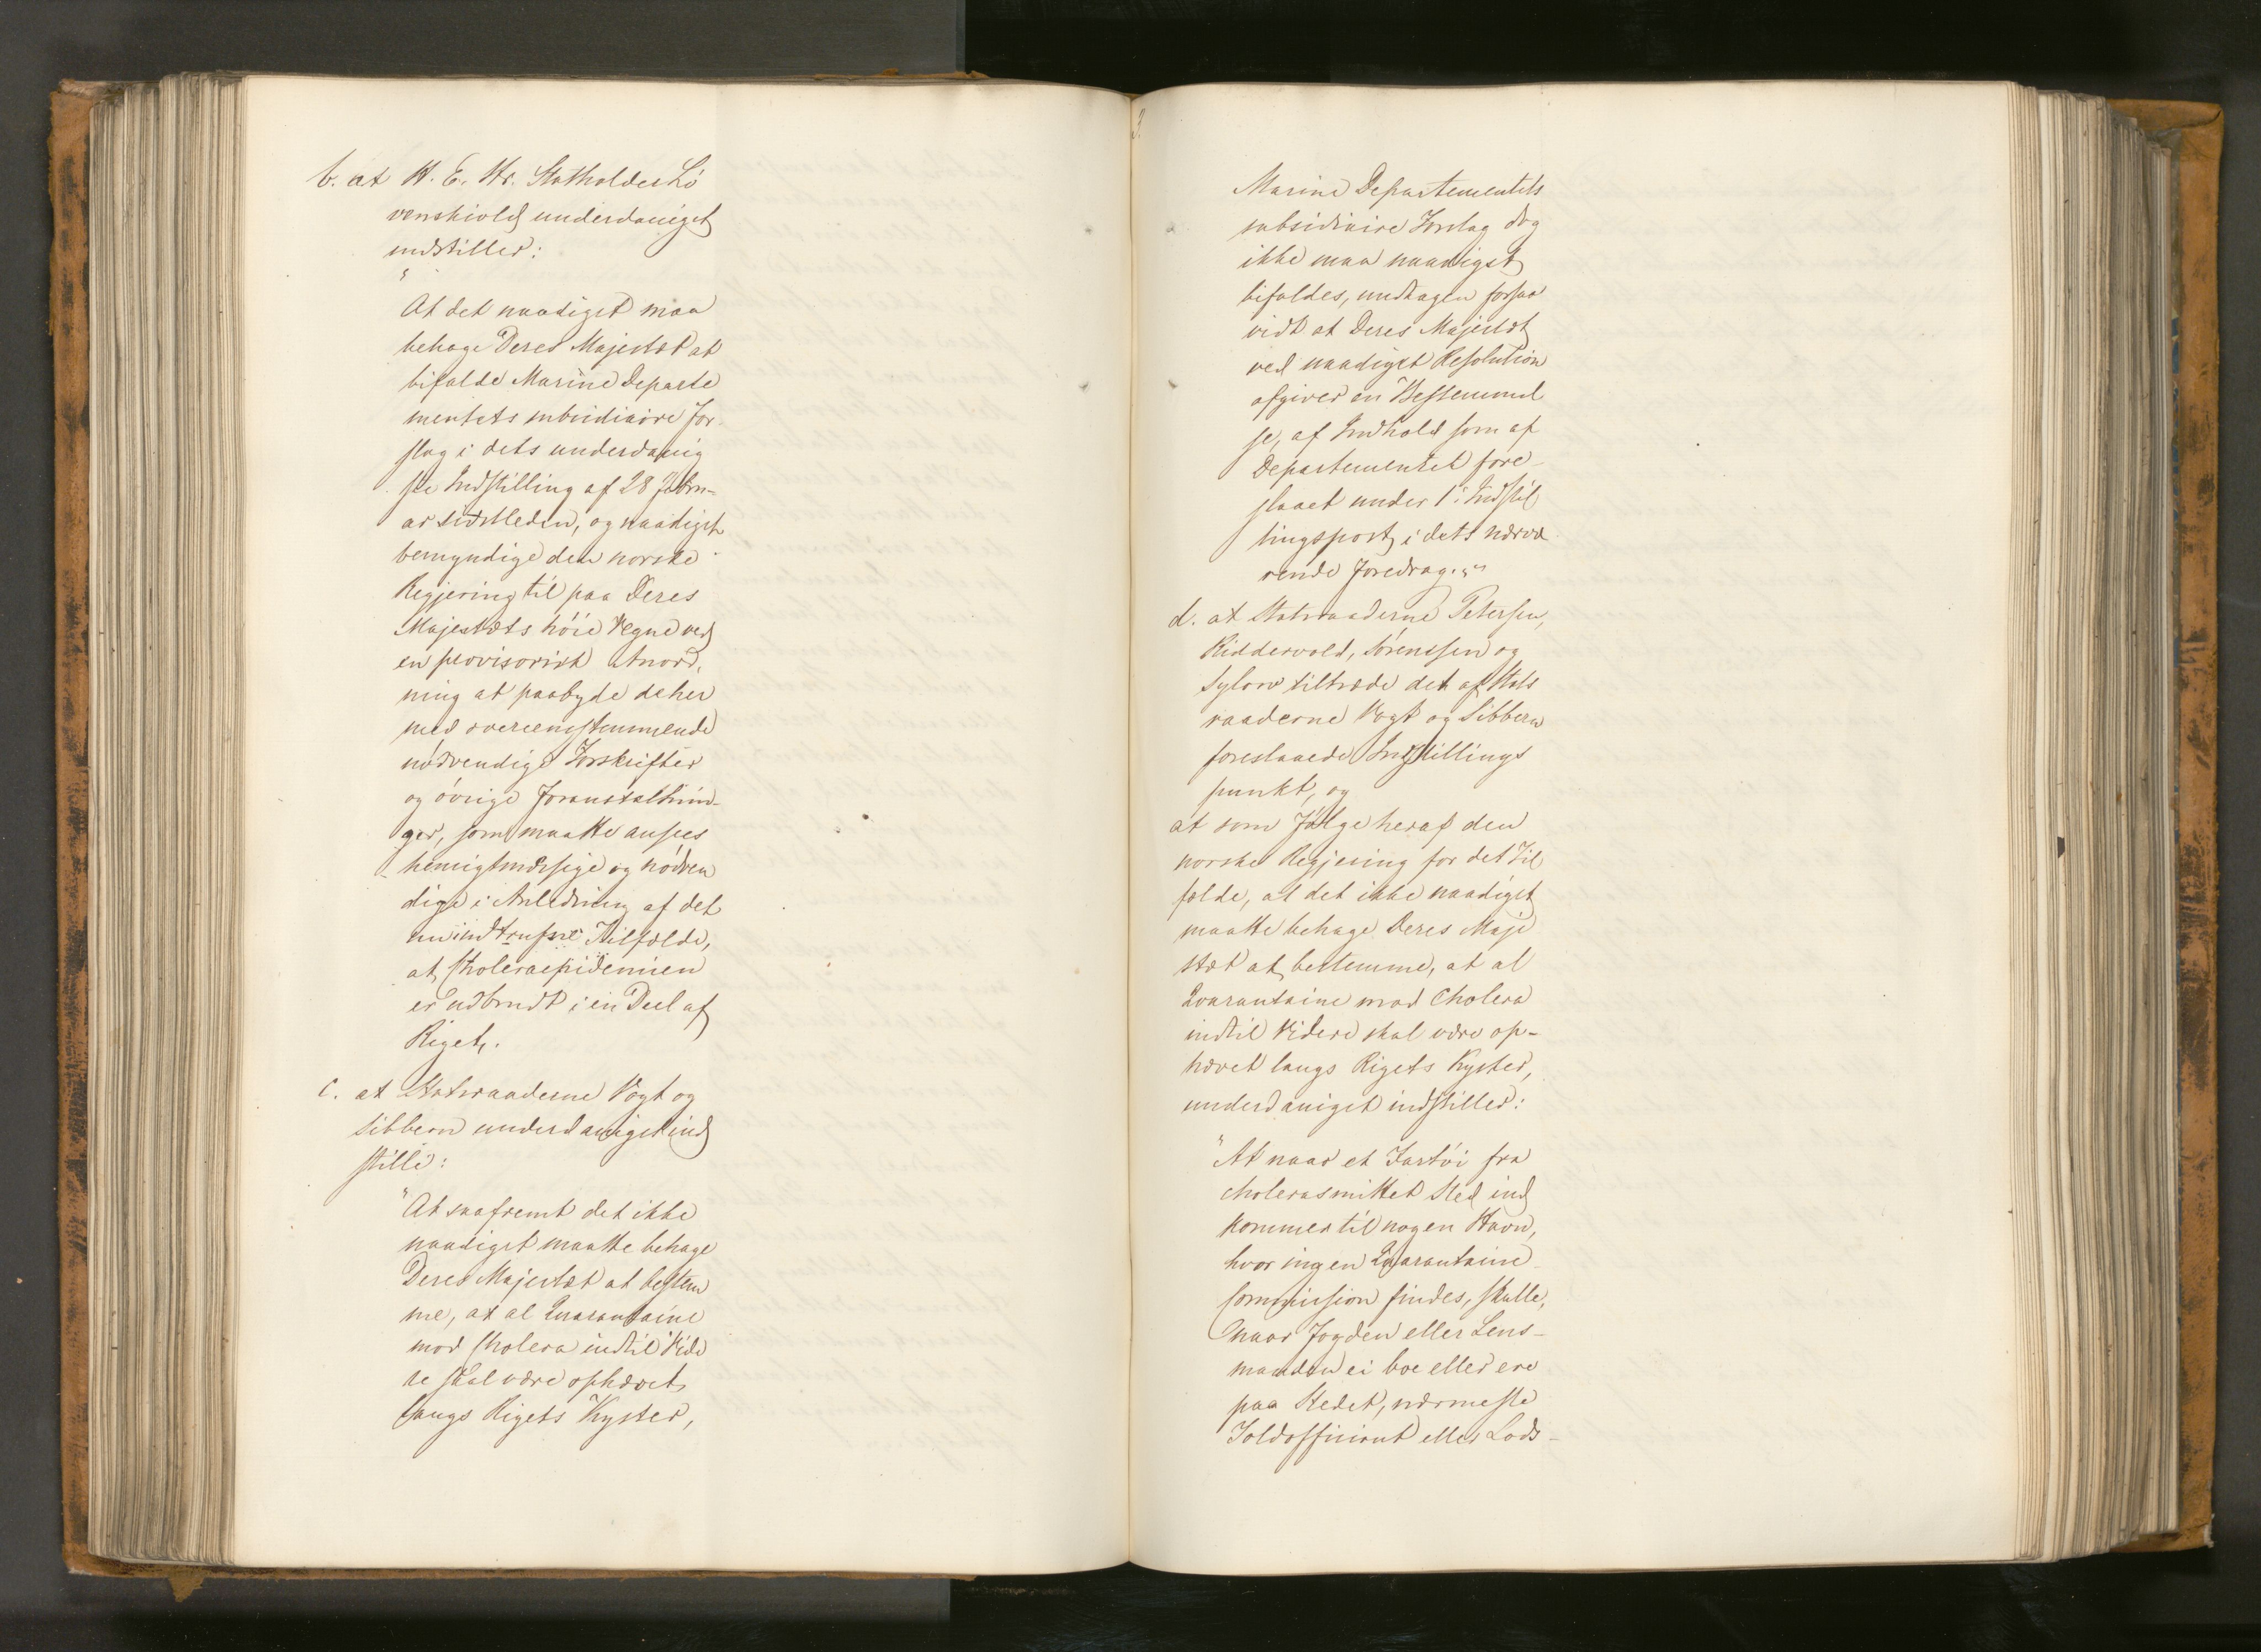 b. at H. E. Hr. Statholder Lö
venskiold underdanigst
indstiller:
"
At det naadigst maa
behage Deres Majestæt at
bifalde Marine Departe
mentets subsidiaire For-
slag i dets underdanig
ste Indstilling af 28 Febru-
ar sidstleden, og naadigst
bemyndige den norske
Regjering til paa Deres
Majestæts höie Vegne ved
en provisorisk Anord,
ning at paabyde de her
med overeensstemmende
nödvendige Forskrifter
og övrige Foranstaltnin-
ger, som maatte ansees
hensigtmæssige og nödven
dige i Anledning af det
nu indtrufne Tilfælde,
at Choleraepidemien
er udbrudt i en Deel af
Riget.
c. at Statsraaderne Vogt og
Sibbern underdanigst ind
stille:
"At saafremt det ikke
naadigst maatte behage
Deres Majestæt at bestem
me, at al Quarantaine
mod Cholera indtil Vide
re skal være ophævet
langs Rigets Kyster,
3.
Marine Departementets
subsidiaire Forslag dog
ikke maa naadigst
bifaldes, undtagen forsaa
vidt at Deres Majestæt
ved naadigst Resolution
afgiver en Bestemmel
se, af Indhold som af
Departementet fore-
slaaet under 1ste Indstil
lingspost i dets nærvæ
rende Foredrag."
d. at Statsraaderne Petersen,
Riddervold, Sörenssen og
Sylow tiltræde det af Stats
raaderne Vogt og Sibbern
foreslaaede Indstillings
punkt, og
at som Fölge heraf den
norske Regjering for det Til
fælde, at det ikke naadigst
maatte behage Deres Maje
stæt at bestemme, at al
Quarantaine mod Cholera
indtil Videre skal være op-
hævet langs Rigets Kyster,
underdanigst indstiller:
"At naar et Fartöi fra
cholerasmittet Sted ind
kommer til nogen Havn,
hvor ingen Quarantaine
Commission findes, skulle,
naar Fogden eller Lens-
manden ei boe eller ere
paa Stedet, nærmeste
Toldofficiant eller Lods-